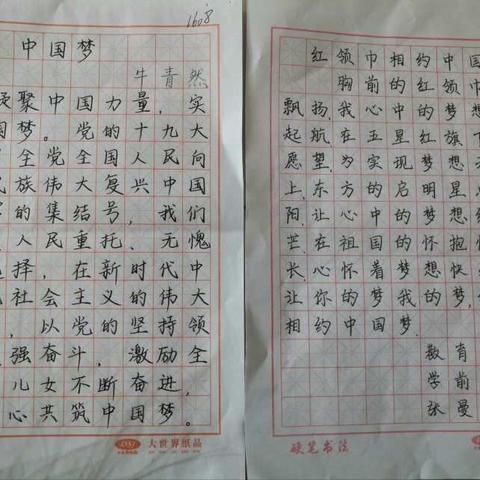 1608
中国梦
牛青然
凝聚中国力量，实
国梦。党的十九大
全党全国人民向
民族伟大复兴中国
的集结号，我们
人民重托、无愧
选择，在新时代中
社会主义的伟大
，以党的坚持领
强奋斗，激励全
儿女不断奋进，
心共筑中国梦。
大世界纸品
红领巾相约中国
胸前的红领巾
飘扬,我心中的梦想
起航,在五星红旗下
愿望,为实现梦想
上,东方的启明星
阳,让心中的梦想
芒,在祖国的怀抱
长,心怀着梦想快
让你的梦我的梦,
相约中国梦.
敬肖
学前
张曼
硬笔书法